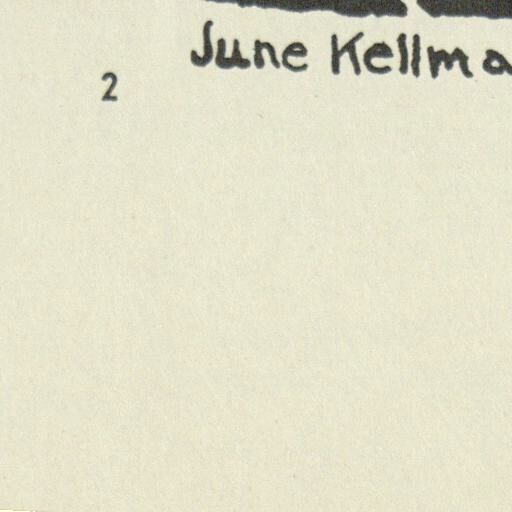 June Kellma
2